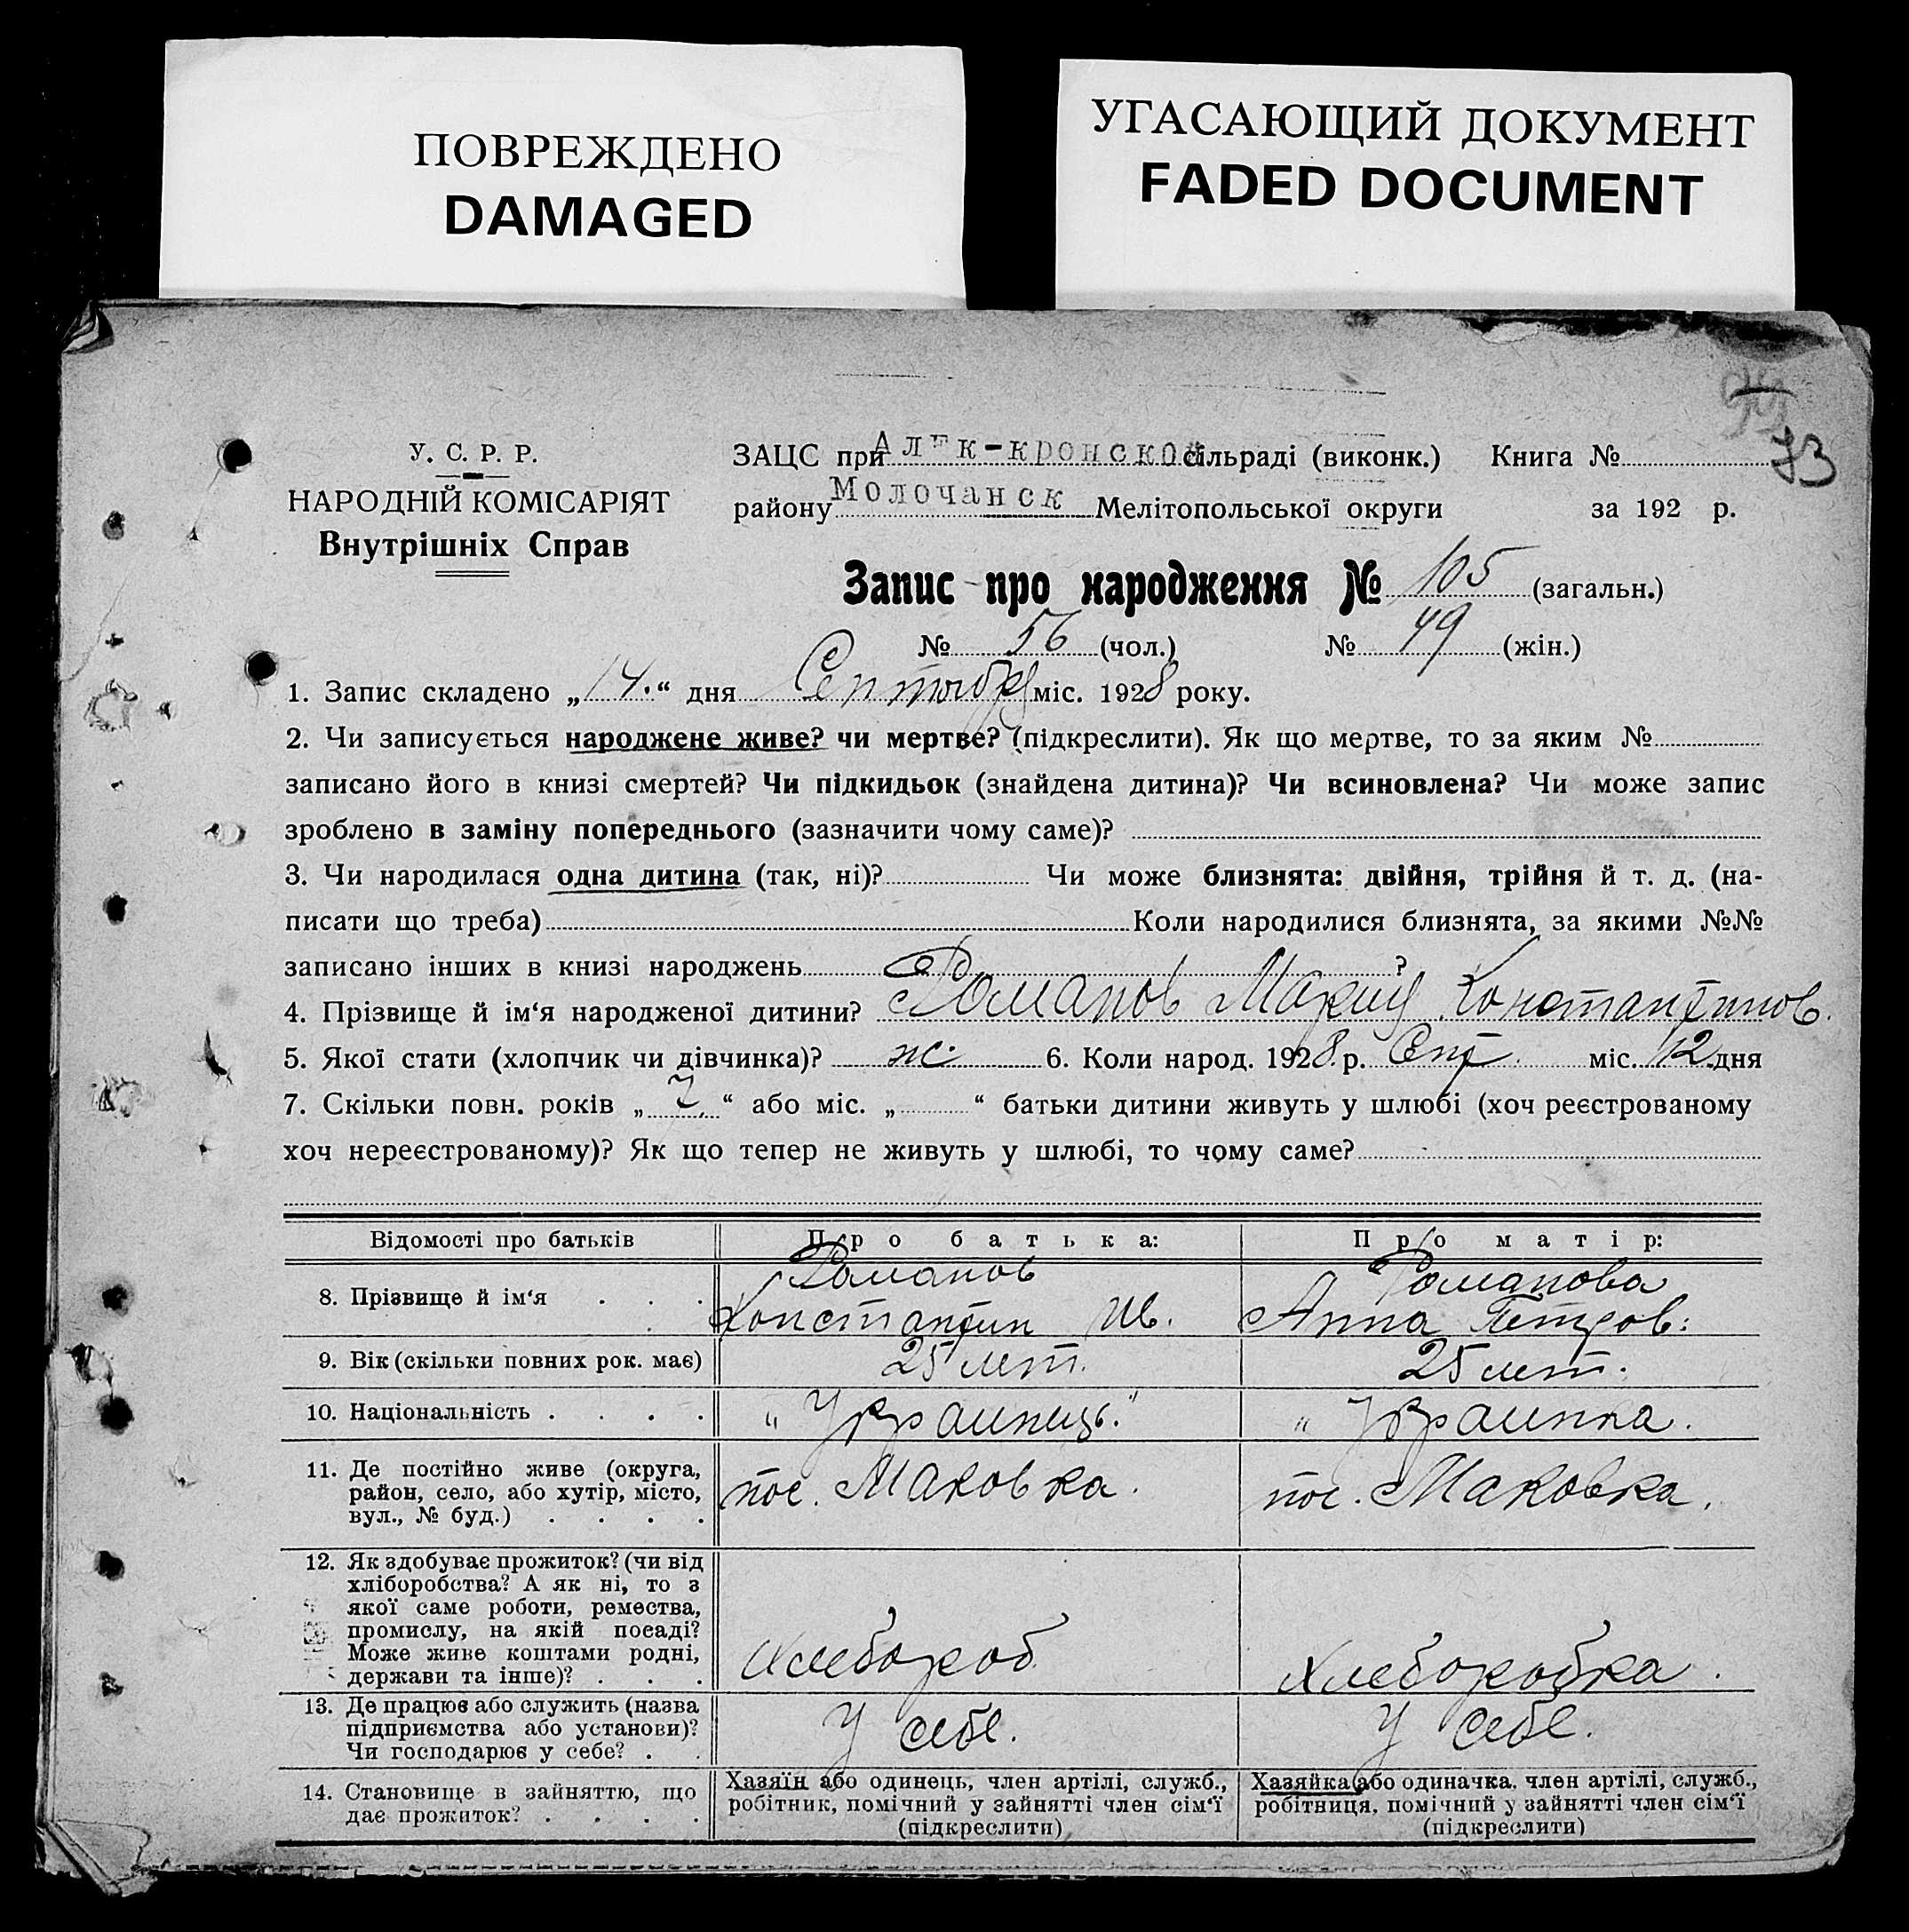 ПОВРЕЖДЕНО
DAMAGED
УГАСАЮЩИЙ ДОКУМЕНТ
FADED DOCUMENT
73
У. С. Р. Р.
НАРОДНІЙ КОМІСАРІЯТ
Внутрішніх Справ
ЗАЦС при Алек-кронской сільраді (виконк.) Книга №
району Молочанск Мелітопольської округи за 192 р.
Запис про народження № 105 (загальн.)
№ 56 (чол.) № 49 (жін.)
1. Запис складено „14.“ дня Сентября міс. 1928 року.
2. Чи записується народжене живе? чи мертве? (підкреслити). Як що мертве, то за яким №
записано його в книзі смертей? Чи підкидьок (знайдена дитина)? Чи всиновлена? Чи може запис
зроблено в заміну попереднього (зазначити чому саме)?
3. Чи народилася одна дитина (так, ні)? Чи може близнята: двійня, трійня й т. д. (на-
писати що треба) Коли народилися близнята, за якими №№
записано інших в книзі народжень ?
4. Прізвище й ім‘я народженої дитини? Романов Константинов.
5. Якої стати (хлопчик чи дівчинка)? ж. 6. Коли народ. 1928. р. Сент. міс. 12 дня
7. Скільки повн. років „7“ або міс. „ “ батьки дитини живуть у шлюбі (хоч реєстрованому
хоч нереєстрованому)? Як що тепер не живуть у шлюбі, то чому саме?
Відомості про батьків Про батька: Про матір:
8. Прізвище й ім‘я . . . Романов Константин Ив. Романова Анна Петров.
9. Вік (скільки повних рок. має) 25 лет. 25 лет.
10. Національність . . . . „Украинец." „Украинка.
11. Де постійно живе (округа,
район, село, або хутір, місто,
вул., № буд.) . . . .
пос. Маковка. пос. Маковка.
12. Як здобуває прожиток? (чи від
хліборобства? А як ні, то з
якої саме роботи, ремества,
промислу, на якій посаді?
Може живе коштами родні,
держави та інше)? . . .
Хлебороб Хлеборобка.
13. Де працює або служить (назва
підприємства або установи)?
Чи господарює у себе? . .
У себе. У себе.
14. Становище в зайняттю, що
дає прожиток? . . . .
Хазяїн або одинець, член артілі, служб.,
робітник, помічний у зайнятті член сім‘ї
(підкреслити)
Хазяйка або одиначка, член артілі, служб.,
робітниця, помічний у зайнятті член сім‘ї
(підкреслити)